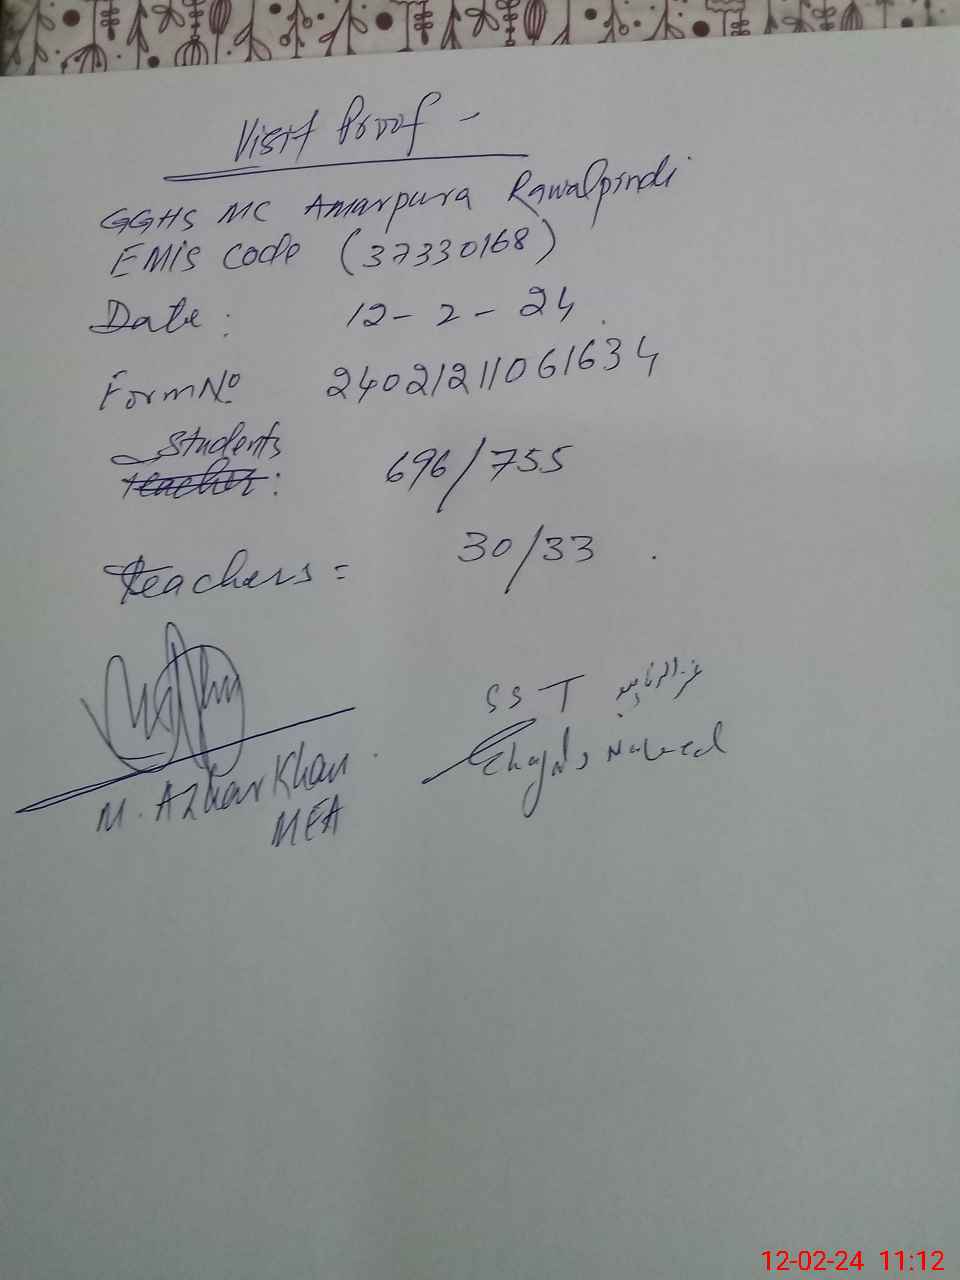 Visit Proof -
GGHS MC Amarpura Rawalpindi
EMIS Code (37330168)
Date : 12 - 2 - 24
Form No 24021211061634
Students 696/755
teacher:
teachers = 30/33
SST
M. Azhar Khan
MEA
12-02-24 11:12